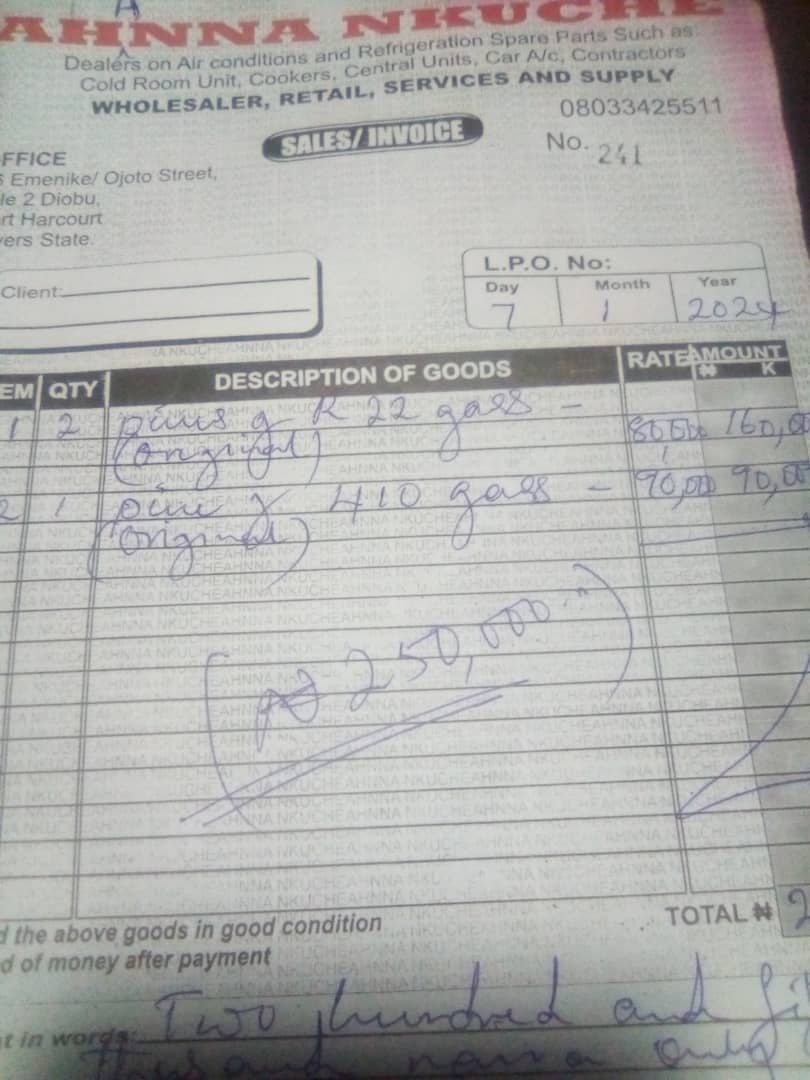 AHNNA NKUCHE
Dealers on Air conditions and Refrigeration Spare Parts Such as
Cold Room Unit, Cookers, Central Units, Car A/c, Contractors
WHOLESALER, RETAIL, SERVICES AND SUPPLY
08033425511
SALES/INVOICE
No. 241
FFICE
Emenike/ Ojoto Street,
le 2 Diobu,
rt Harcourt
ers State.
Client:
L.P.O. No:
Day Month Year
7 1 2024
EM QTY DESCRIPTION OF GOODS RATE AMOUNT
₦ K
1 2 R 22 gass - 80000 160,00
2 1 410 gass - 90,000 90,00
(Original)
₦ 250,000
d the above goods in good condition
d of money after payment
TOTAL ₦ 2
t in words: Two hundred and fi
naira only